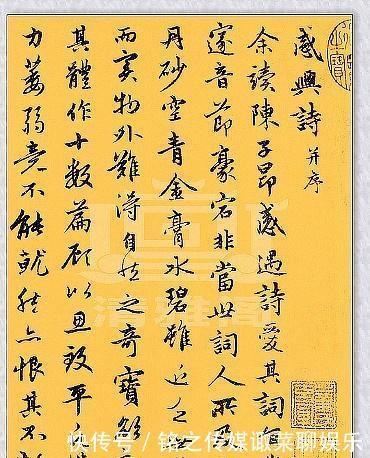 感興詩 并序
余讀陳子昂感遇詩愛其詞旨
邃音節豪宕非當世詞人所及
丹砂空青金膏水碧雖近乏世
而實物外難得自然之奇寶欲
其體作十數篇顧以思致平凡
力萎弱竟不能就然亦恨其不
清雅阁
快传号／铭之传媒诹菜聊娱乐